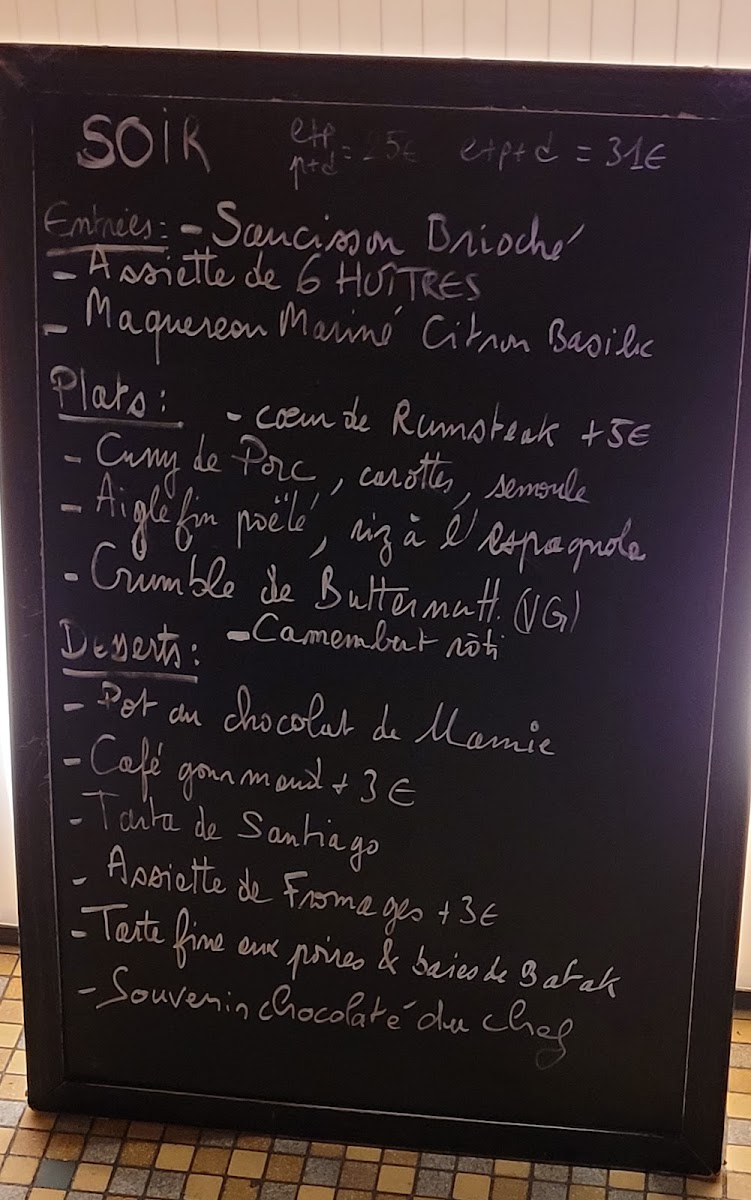 SOIR e+p p+d = 25€ e+p+d = 31€
Entrées: - Saucisson Brioché
- Assiette de 6 HUÎTRES
- Maquereau Mariné Citron Basilic
Plats: - cœur de Rumsteak +5€
- Curry de Porc, carottes, semoule
- Aiglefin poëlé, riz à l'espagnole
- Crumble de Butternutt (VG)
Desserts: - Camembert rôti
- Pot au chocolat de Mamie
- Café gourmand + 3€
- Tarta de Santiago
- Assiette de Fromages +3€
- Tarte fine aux poires & baies de Batak
- Souvenir chocolaté du chef